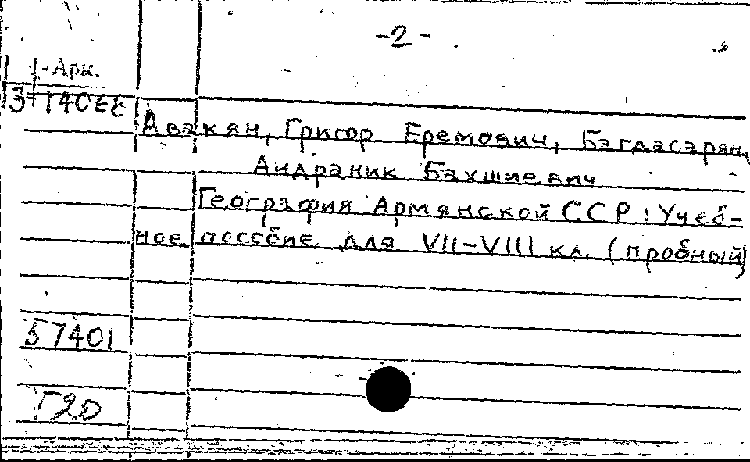 -2-
-Арм.
Авакян, Григор Еремович, Багдасарян,
Андраник Бахшиевич
География Армянской ССР: Учеб-
ное пособие для VII-VIII кл. (пробный)
57401
Г20